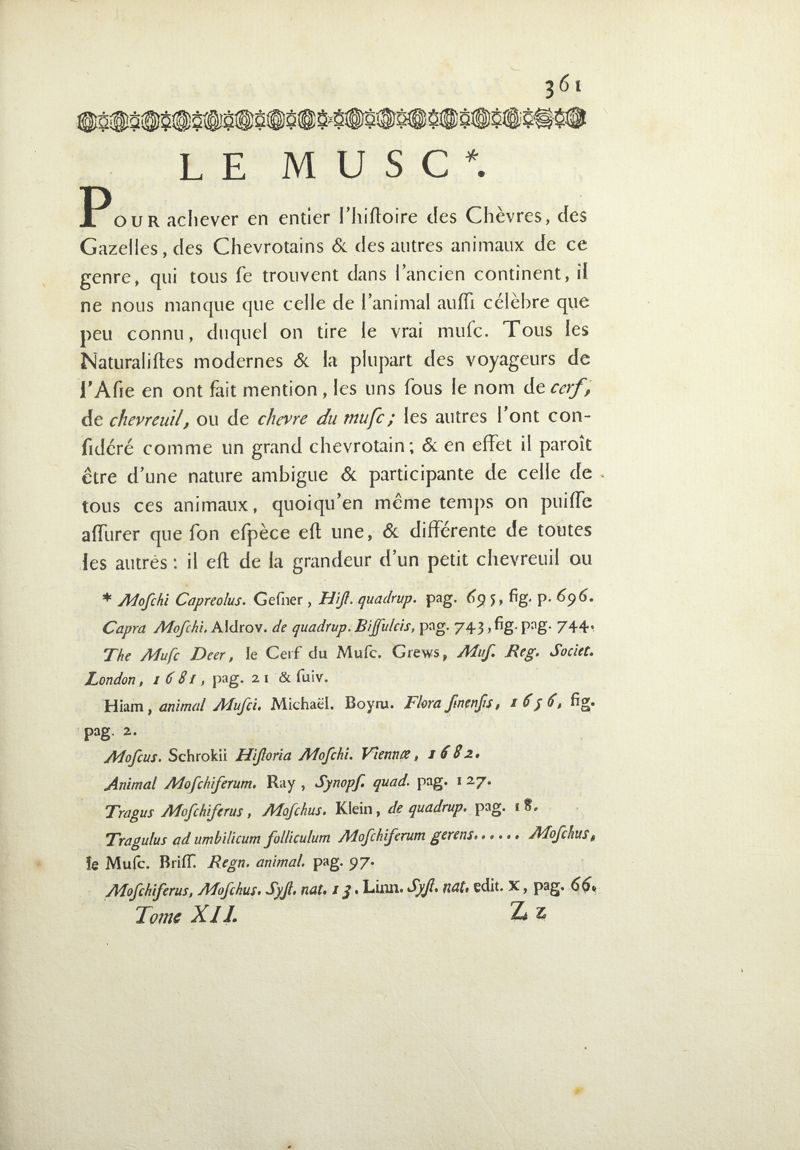 361
LE MUSC*.
POUR achever en entier l'hiſtoire des Chèvres, des
Gazelles, des Chevrotains & des autres animaux de ce
genre, qui tous ſe trouvent dans l'ancien continent, il
ne nous manque que celle de l'animal auſſi célèbre que
peu connu, duquel on tire le vrai muſc. Tous les
Naturaliſtes modernes & la plupart des voyageurs de
l'Aſie en ont fait mention, les uns ſous le nom de cerf,
de chevreuil, ou de chevre du muſc; les autres l'ont con-
ſidéré comme un grand chevrotain; & en effet il paroît
être d'une nature ambigue & participante de celle de
tous ces animaux, quoiqu'en même temps on puiſſe
aſſurer que ſon eſpèce eſt une, & différente de toutes
les autres: il eſt de la grandeur d'un petit chevreuil ou
* Moſchi Capreolus. Geſner, Hiſt. quadrup. pag. 695, fig. p. 696.
Capra Moſchi. Aldrov. de quadrup. Biſſulcis, pag. 743, fig. pag. 744.
The Muſc Deer, le Cerf du Muſc. Grews, Muſ. Reg. Societ.
London, 1681, pag. 21 & ſuiv.
Hiam, animal Muſci. Michaël. Boyru. Flora ſinenſis, 1656, fig.
pag. 2.
Moſcus. Schrokii Hiſtoria Moſchi. Viennæ, 1682.
Animal Moſchiferum. Ray, Synopſ. quad. pag. 127.
Tragus Moſchiferus, Moſchus. Klein, de quadrup. pag. 18.
Tragulus ad umbilicum folliculum Moſchiferum gerens...... Moſchus,
le Muſc. Briſſ. Regn. animal. pag. 97.
Moſchiferus, Moſchus. Syſt. nat. 13. Linn. Syſt. nat. edit. X, pag. 66.
Tome XII. Zz